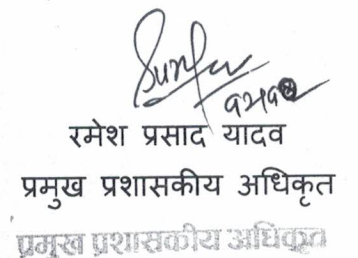 रमेश प्रसाद यादव
प्रमुख प्रशासकीय अधिकृत
प्रमुख प्रशासकीय अधिकृत